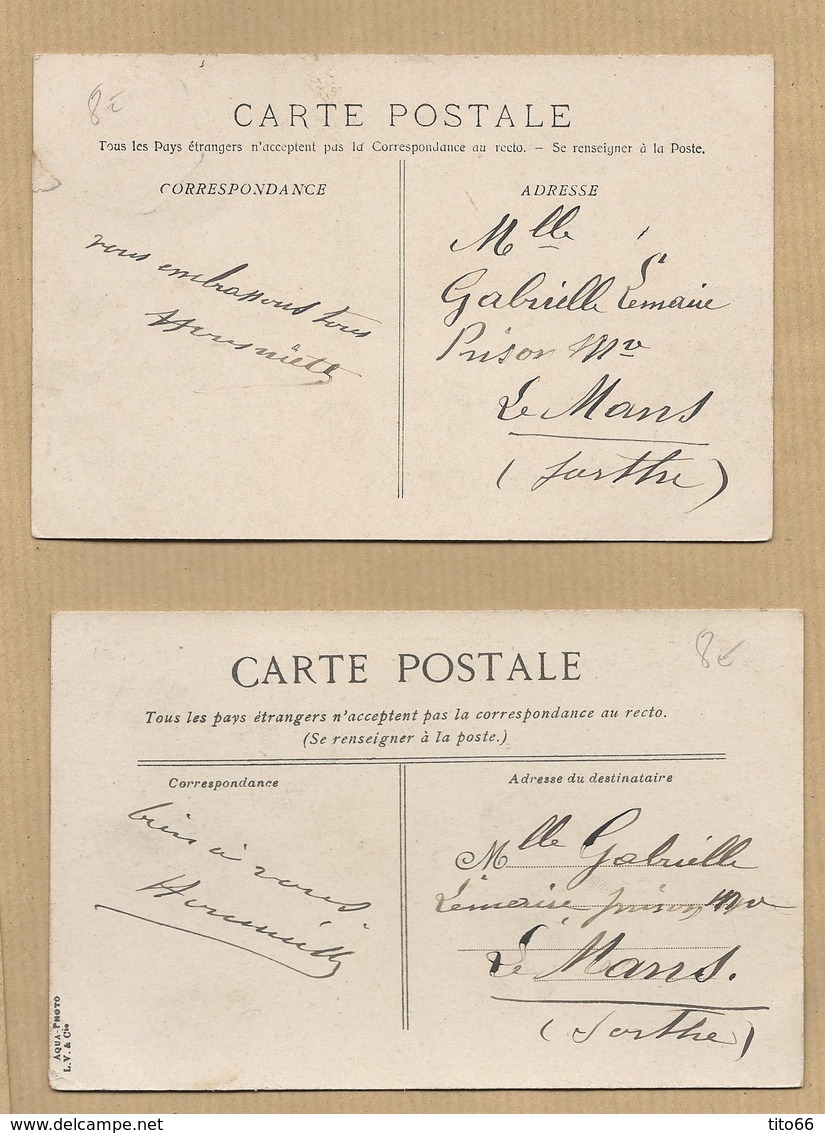 8€
CARTE POSTALE
Tous les Pays étrangers n'acceptent pas la Correspondance au recto. – Se renseigner à la Poste.
CORRESPONDANCE
vous embrassons tous
Henriette
ADRESSE
Mlle
Gabrielle Lemaire
Prison Mve
Le Mans
(Sarthe)
8€
CARTE POSTALE
Tous les pays étrangers n'acceptent pas la correspondance au recto.
(Se renseigner à la poste.)
Correspondance
bien à vous
Henriette
Adresse du destinataire
Mlle Gabrielle
Lemaire prison Mve
Le Mans.
(Sarthe)
AQUA-PHOTO
L.V. & Cie
delcampe.net
tito66